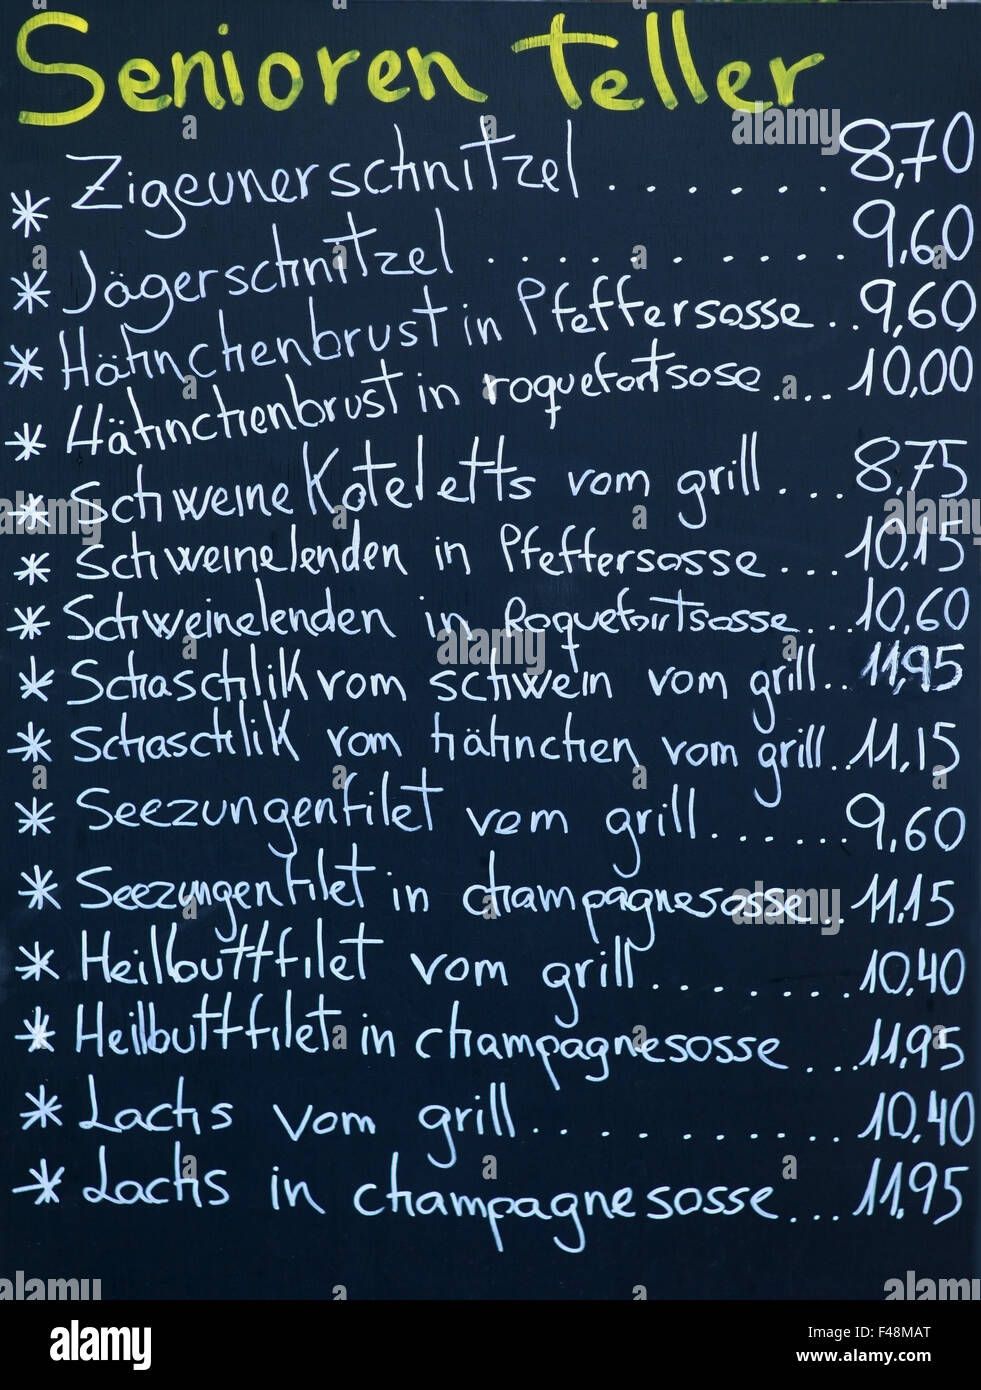 Senioren teller
* Zigeunerschnitzel ....... 8,70
* Jägerschnitzel ........... 9,60
* Hähnchenbrust in Pfeffersosse .. 9,60
* Hähnchenbrust in roquefortsose .... 10,00
* SchweineKoteletts vom grill .... 8,75
* Schweinelenden in Pfeffersosse .... 10,15
* Schweinelenden in Roquefortsosse .... 10,60
* Schaschlik vom schwein vom grill .. 11,95
* Schaschlik vom hähnchen vom grill .. 11,15
* Seezungenfilet vom grill ....... 9,60
* Seezungenfilet in champagnesosse .. 11,15
* Heilbuttfilet vom grill ........ 10,40
* Heilbuttfilet in champagnesosse .... 11,95
* Lachs vom grill ........... 10,40
* Lachs in champagnesosse .... 11,95
alamy
alamy
Image ID: F48MAT
www.alamy.com